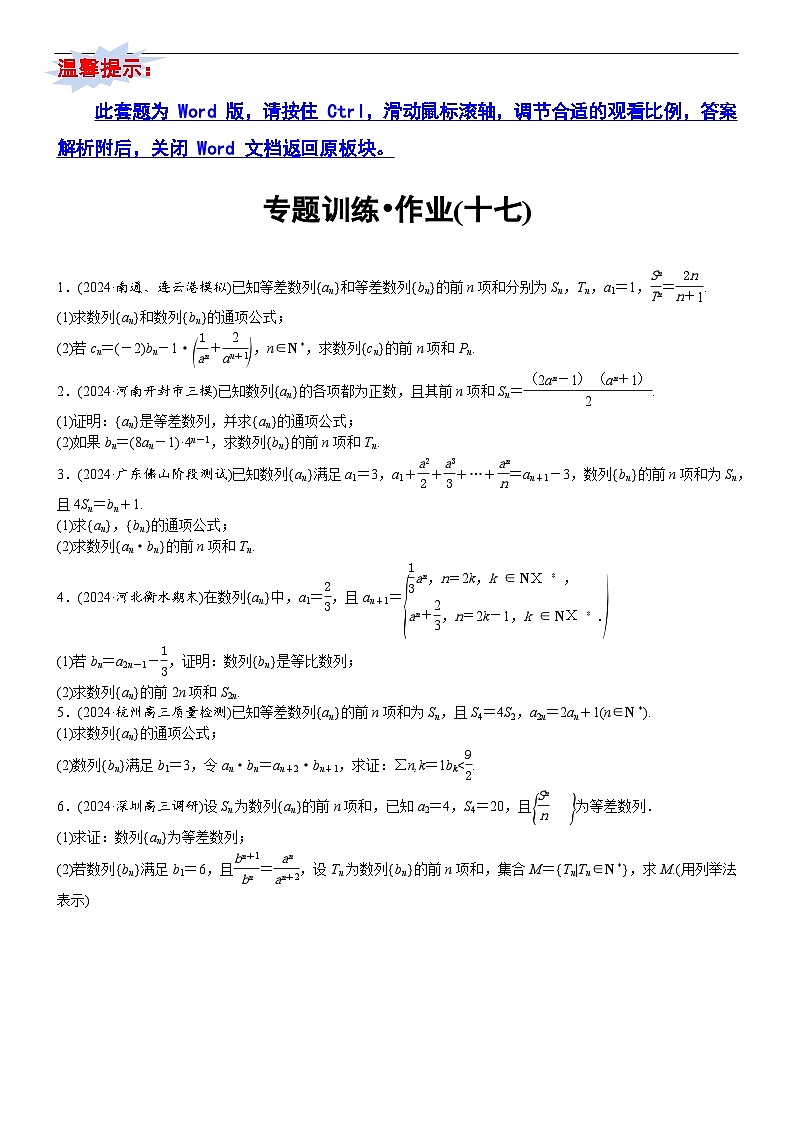 温馨提示：
此套题为 Word 版，请按住 Ctrl，滑动鼠标滚轴，调节合适的观看比例，答案
解析附后，关闭 Word 文档返回原板块。
专题训练•作业(十七)
1．(2024·南通、连云港模拟)已知等差数列{an}和等差数列{bn}的前 n 项和分别为 Sn，Tn，a1＝1，Sn/Tn＝2n/(n＋1).
(1)求数列{an}和数列{bn}的通项公式；
(2)若 cn＝(－2)bn－1·(1/an＋2/an＋1)，n∈N*，求数列{cn}的前 n 项和 Pn.
2．(2024·河南开封市三模)已知数列{an}的各项都为正数，且其前 n 项和 Sn＝（2an－1）（an＋1）/2.
(1)证明：{an}是等差数列，并求{an}的通项公式；
(2)如果 bn＝(8an－1)·4n－1，求数列{bn}的前 n 项和 Tn.
3．(2024·广东佛山阶段测试)已知数列{an}满足 a1＝3，a1＋a2/2＋a3/3＋…＋an/n＝an＋1－3，数列{bn}的前 n 项和为 Sn，
且 4Sn＝bn＋1.
(1)求{an}，{bn}的通项公式；
(2)求数列{an·bn}的前 n 项和 Tn.
4．(2024·河北衡水期末)在数列{an}中，a1＝2/3，且 an＋1＝(1/3an，n＝2k，k ∈NX *，
an＋2/3，n＝2k－1，k ∈NX *．)
(1)若 bn＝a2n－1－1/3，证明：数列{bn}是等比数列；
(2)求数列{an}的前 2n 项和 S2n.
5．(2024·杭州高三质量检测)已知等差数列{an}的前 n 项和为 Sn，且 S4＝4S2，a2n＝2an＋1(n∈N*).
(1)求数列{an}的通项公式；
(2)数列{bn}满足 b1＝3，令 an·bn＝an＋2·bn＋1，求证：∑n,k＝1bk<9/2.
6．(2024·深圳高三调研)设 Sn 为数列{an}的前 n 项和，已知 a2＝4，S4＝20，且{Sn/n}为等差数列．
(1)求证：数列{an}为等差数列；
(2)若数列{bn}满足 b1＝6，且bn＋1/bn＝an/an＋2，设 Tn 为数列{bn}的前 n 项和，集合 M＝{Tn|Tn∈N*}，求 M.(用列举法
表示)